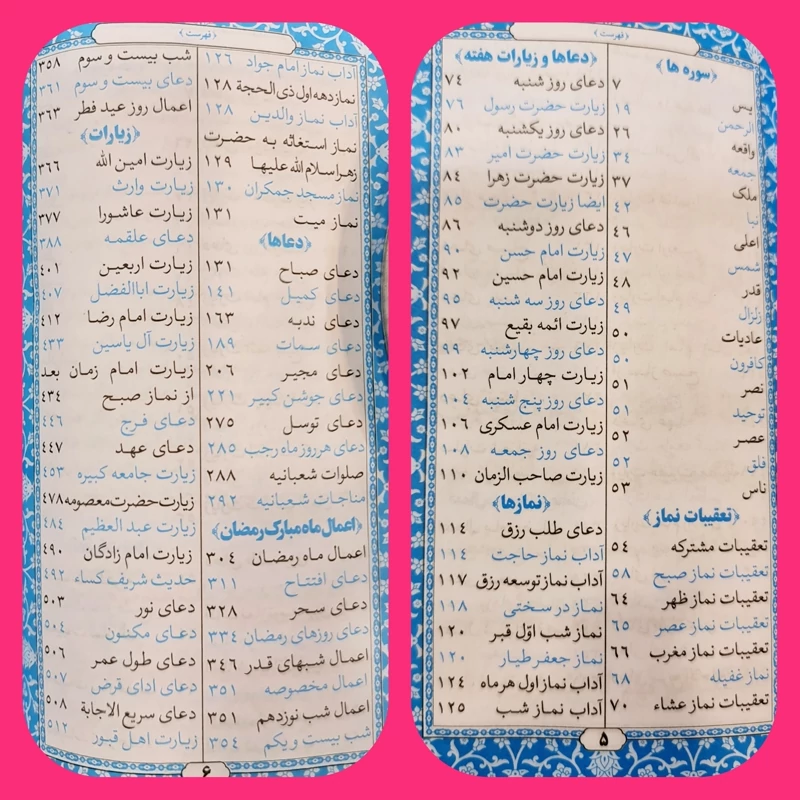 ﴿فهرست﴾
﴿سوره ها﴾
یس ۷
الرحمن ۱۹
واقعه ۲۶
جمعه ۳۴
ملک ۳۷
نبا ۴۲
اعلی ۴۶
شمس ۴۷
قدر ۴۸
زلزال ۴۹
عادیات ۵۰
کافرون ۵۰
نصر ۵۱
توحید ۵۱
عصر ۵۲
فلق ۵۲
ناس ۵۳
﴿تعقیبات نماز﴾
تعقیبات مشترکه ۵۴
تعقیبات نماز صبح ۵۸
تعقیبات نماز ظهر ۶۴
تعقیبات نماز عصر ۶۵
تعقیبات نماز مغرب ۶۶
نماز غفیله ۶۸
تعقیبات نماز عشاء ۷۰
﴿دعاها و زیارات هفته﴾
دعای روز شنبه ۷۴
زیارت حضرت رسول ۷۶
دعای روز یکشنبه ۸۰
زیارت حضرت امیر ۸۳
زیارت حضرت زهرا ۸۴
ایضا زیارت حضرت ۸۵
دعای روز دوشنبه ۸۶
زیارت امام حسن ۹۰
زیارت امام حسین ۹۲
دعای روز سه شنبه ۹۵
زیارت ائمه بقیع ۹۷
دعای روز چهارشنبه ۹۹
زیارت چهار امام ۱۰۲
دعای روز پنج شنبه ۱۰۴
زیارت امام عسکری ۱۰۶
دعای روز جمعه ۱۰۸
زیارت صاحب الزمان ۱۱۰
﴿نمازها﴾
دعای طلب رزق ۱۱۴
آداب نماز حاجت ۱۱۴
آداب نماز توسعه رزق ۱۱۷
نماز در سختی ۱۱۸
نماز شب اوّل قبر ۱۲۰
نماز جعفر طیار ۱۲۰
آداب نماز اول هر ماه ۱۲۴
آداب نماز شب ۱۲۵
۵
﴿فهرست﴾
آداب نماز امام جواد ۱۲۶
نماز دهه اول ذی الحجة ۱۲۸
آداب نماز والدین ۱۲۸
نماز استغاثه به حضرت
زهرا سلام الله علیها ۱۲۹
نماز مسجد جمکران ۱۳۰
نماز میت ۱۳۱
﴿دعاها﴾
دعای صباح ۱۳۱
دعای کمیل ۱۴۱
دعای ندبه ۱۶۳
دعای سمات ۱۸۹
دعای مجیر ۲۰۶
دعای جوشن کبیر ۲۲۱
دعای توسل ۲۷۵
دعای هر روز ماه رجب ۲۸۵
صلوات شعبانیه ۲۸۸
مناجات شعبانیه ۲۹۲
﴿اعمال ماه مبارک رمضان﴾
اعمال ماه رمضان ۳۰۴
دعای افتتاح ۳۱۱
دعای سحر ۳۲۸
دعای روزهای رمضان ۳۳۴
اعمال شبهای قدر ۳۴۶
اعمال مخصوصه ۳۵۱
اعمال شب نوزدهم ۳۵۱
شب بیست و یکم ۳۵۴
شب بیست و سوم ۳۵۸
دعای بیست و سوم ۳۶۱
اعمال روز عید فطر ۳۶۳
﴿زیارات﴾
زیارت امین الله ۳۶۶
زیارت وارث ۳۷۱
زیارت عاشورا ۳۷۷
دعای علقمه ۳۸۸
زیارت اربعین ۴۰۱
زیارت اباالفضل ۴۰۷
زیارت امام رضا ۴۱۲
زیارت آل یاسین ۴۳۳
زیارت امام زمان بعد
از نماز صبح ۴۳۴
دعای فرج ۴۴۶
دعای عهد ۴۴۷
زیارت جامعه کبیره ۴۵۳
زیارت حضرت معصومه ۴۷۸
زیارت عبد العظیم ۴۸۴
زیارت امام زادگان ۴۹۰
حدیث شریف کساء ۴۹۲
دعای نور ۵۰۳
دعای مکنون ۵۰۴
دعای طول عمر ۵۰۶
دعای ادای قرض ۵۰۷
دعای سریع الاجابة ۵۰۸
زیارت اهل قبور ۵۱۲
۶